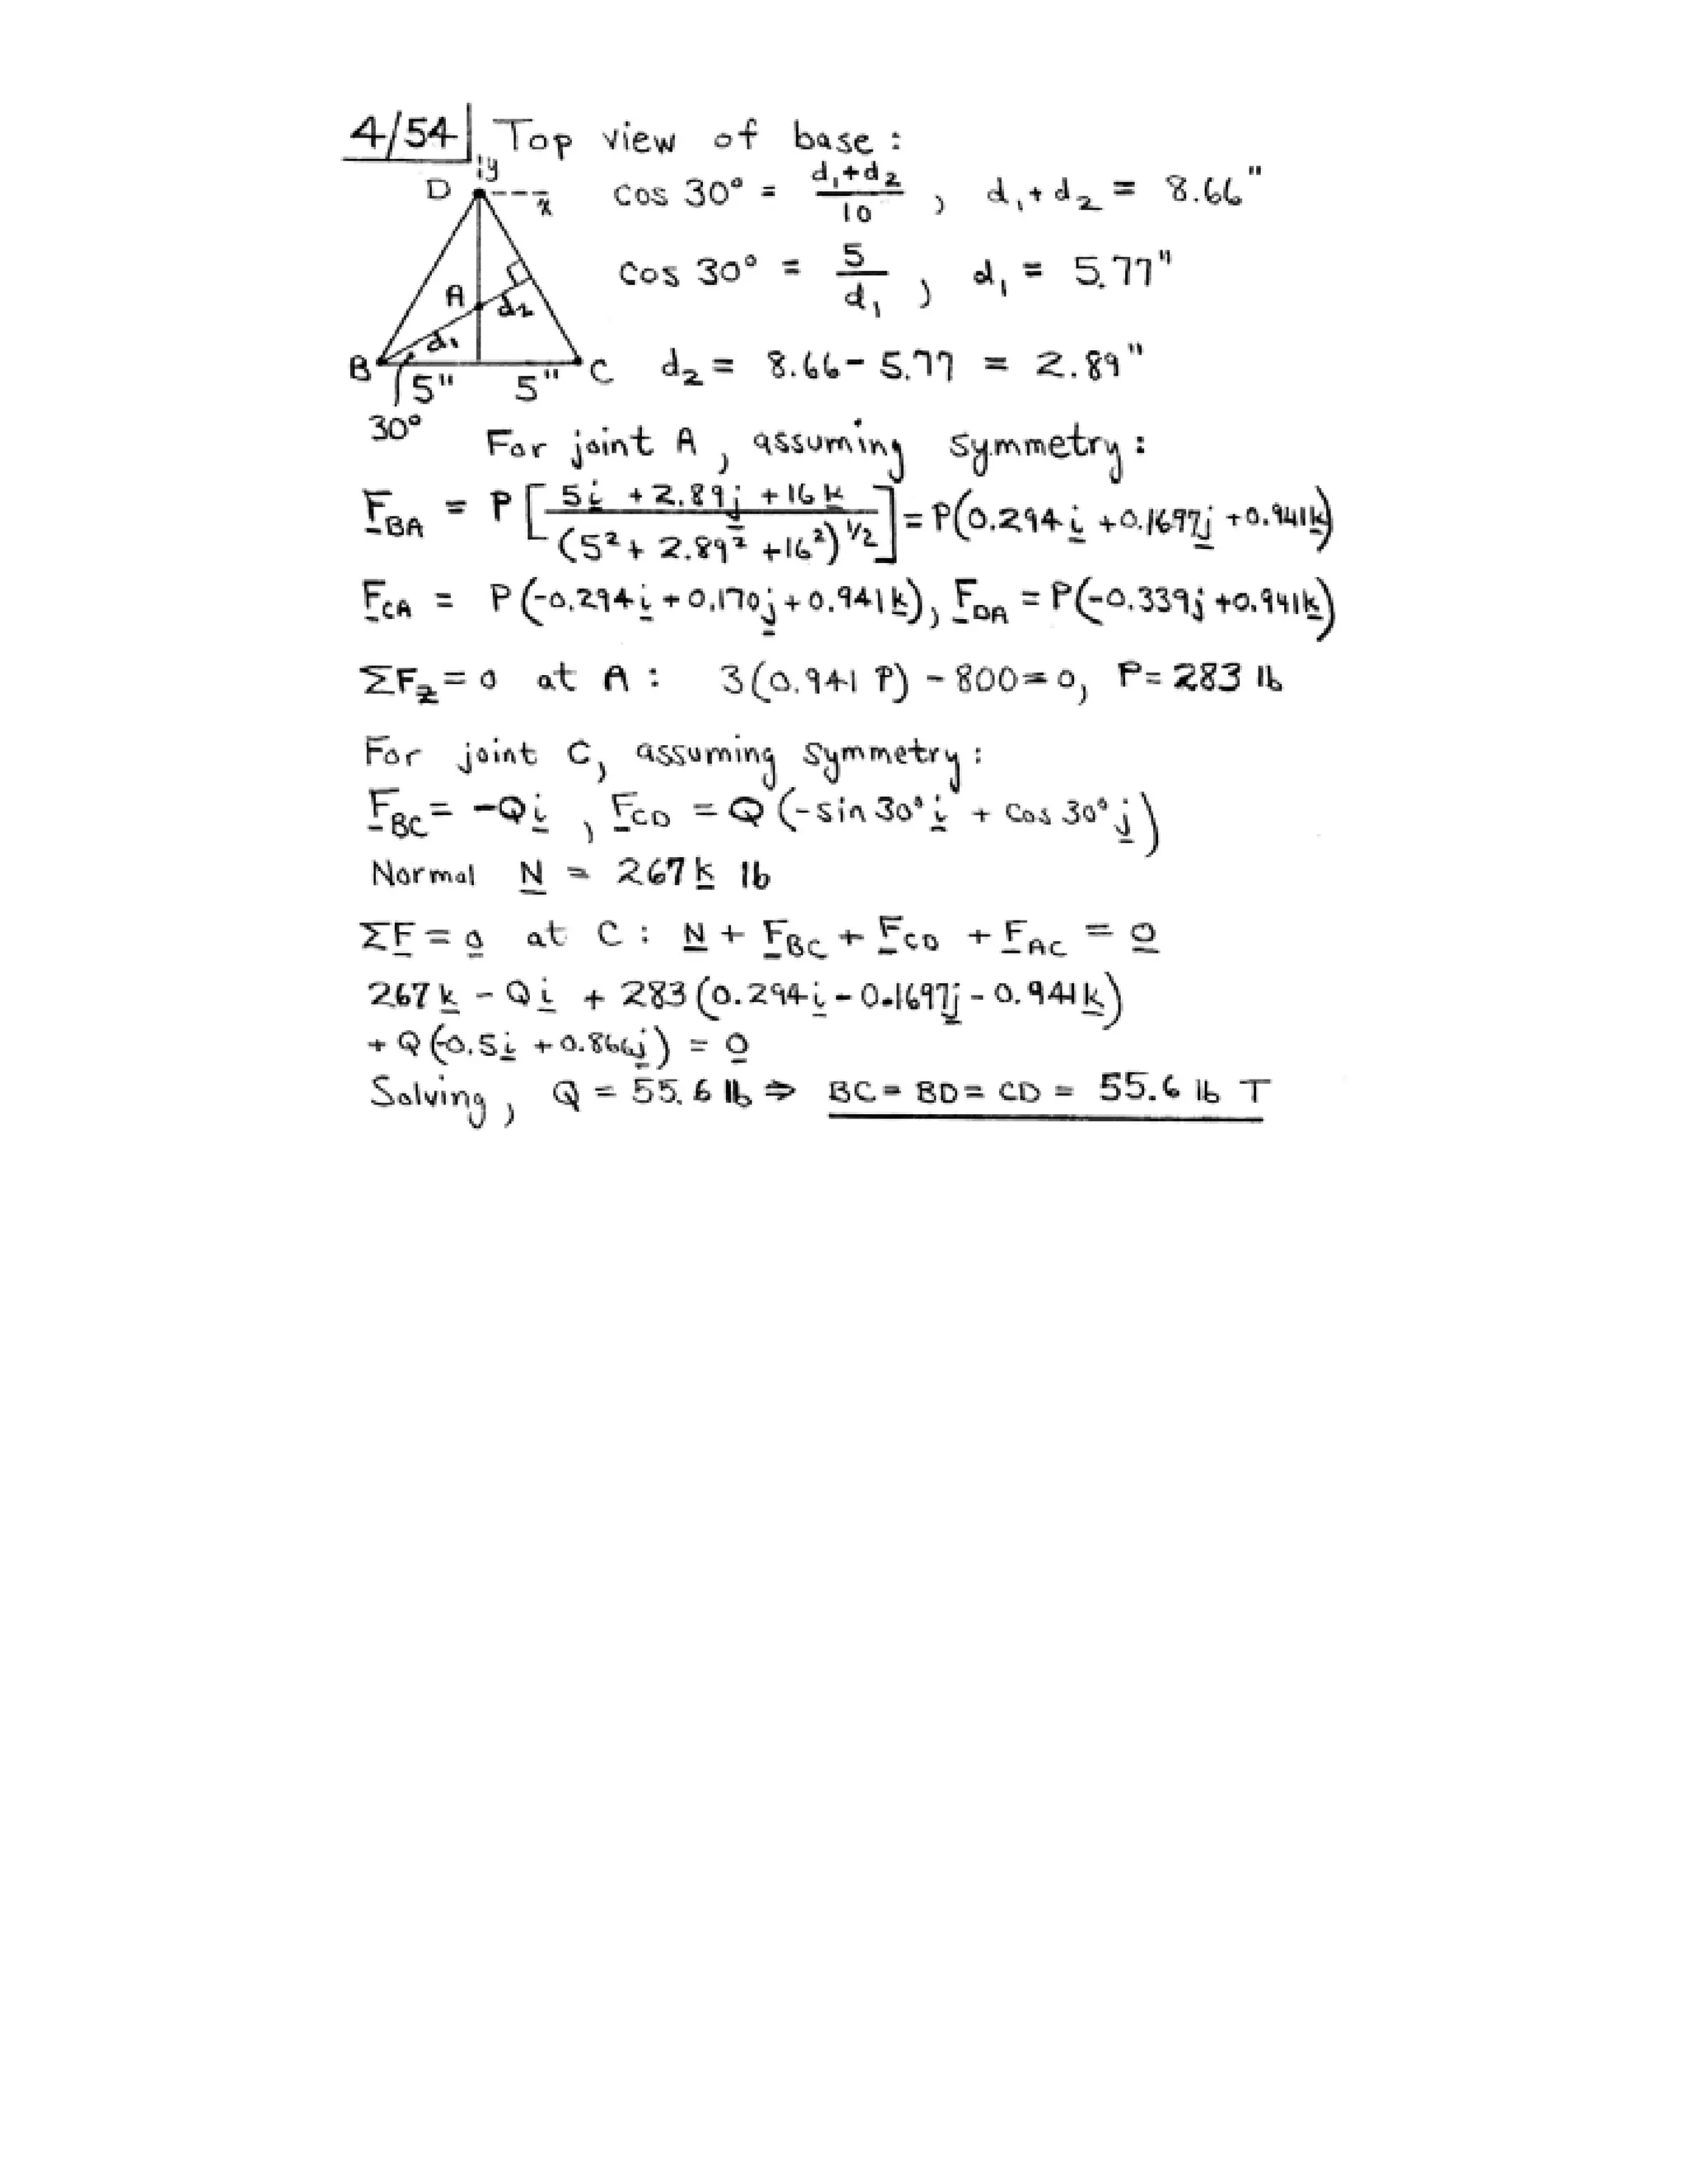 4/54 Top view of base:
y
D
x
cos 30° = (d₁+d₂)/10 , d₁+d₂ = 8.66"
cos 30° = 5/d₁ , d₁ = 5.77"
A
d₂
d₁
B
5"
5"
C
d₂ = 8.66 - 5.77 = 2.89"
30°
For joint A, assuming symmetry:
F_BA = P[(5i + 2.89j + 16k)/(5² + 2.89² + 16²)^1/2] = P(0.294i + 0.1697j + 0.941k)
F_CA = P(-0.294i + 0.170j + 0.941k), F_DA = P(-0.339j + 0.941k)
ΣF_z = 0 at A: 3(0.941 P) - 800 = 0, P = 283 lb
For joint C, assuming symmetry:
F_BC = -Qi , F_CD = Q(-sin 30° i + cos 30° j)
Normal N = 267k lb
ΣF = 0 at C: N + F_BC + F_CD + F_AC = 0
267k - Qi + 283(0.294i - 0.1697j - 0.941k)
+ Q(-0.5i + 0.866j) = 0
Solving, Q = 55.6 lb ⇒ BC = BD = CD = 55.6 lb T